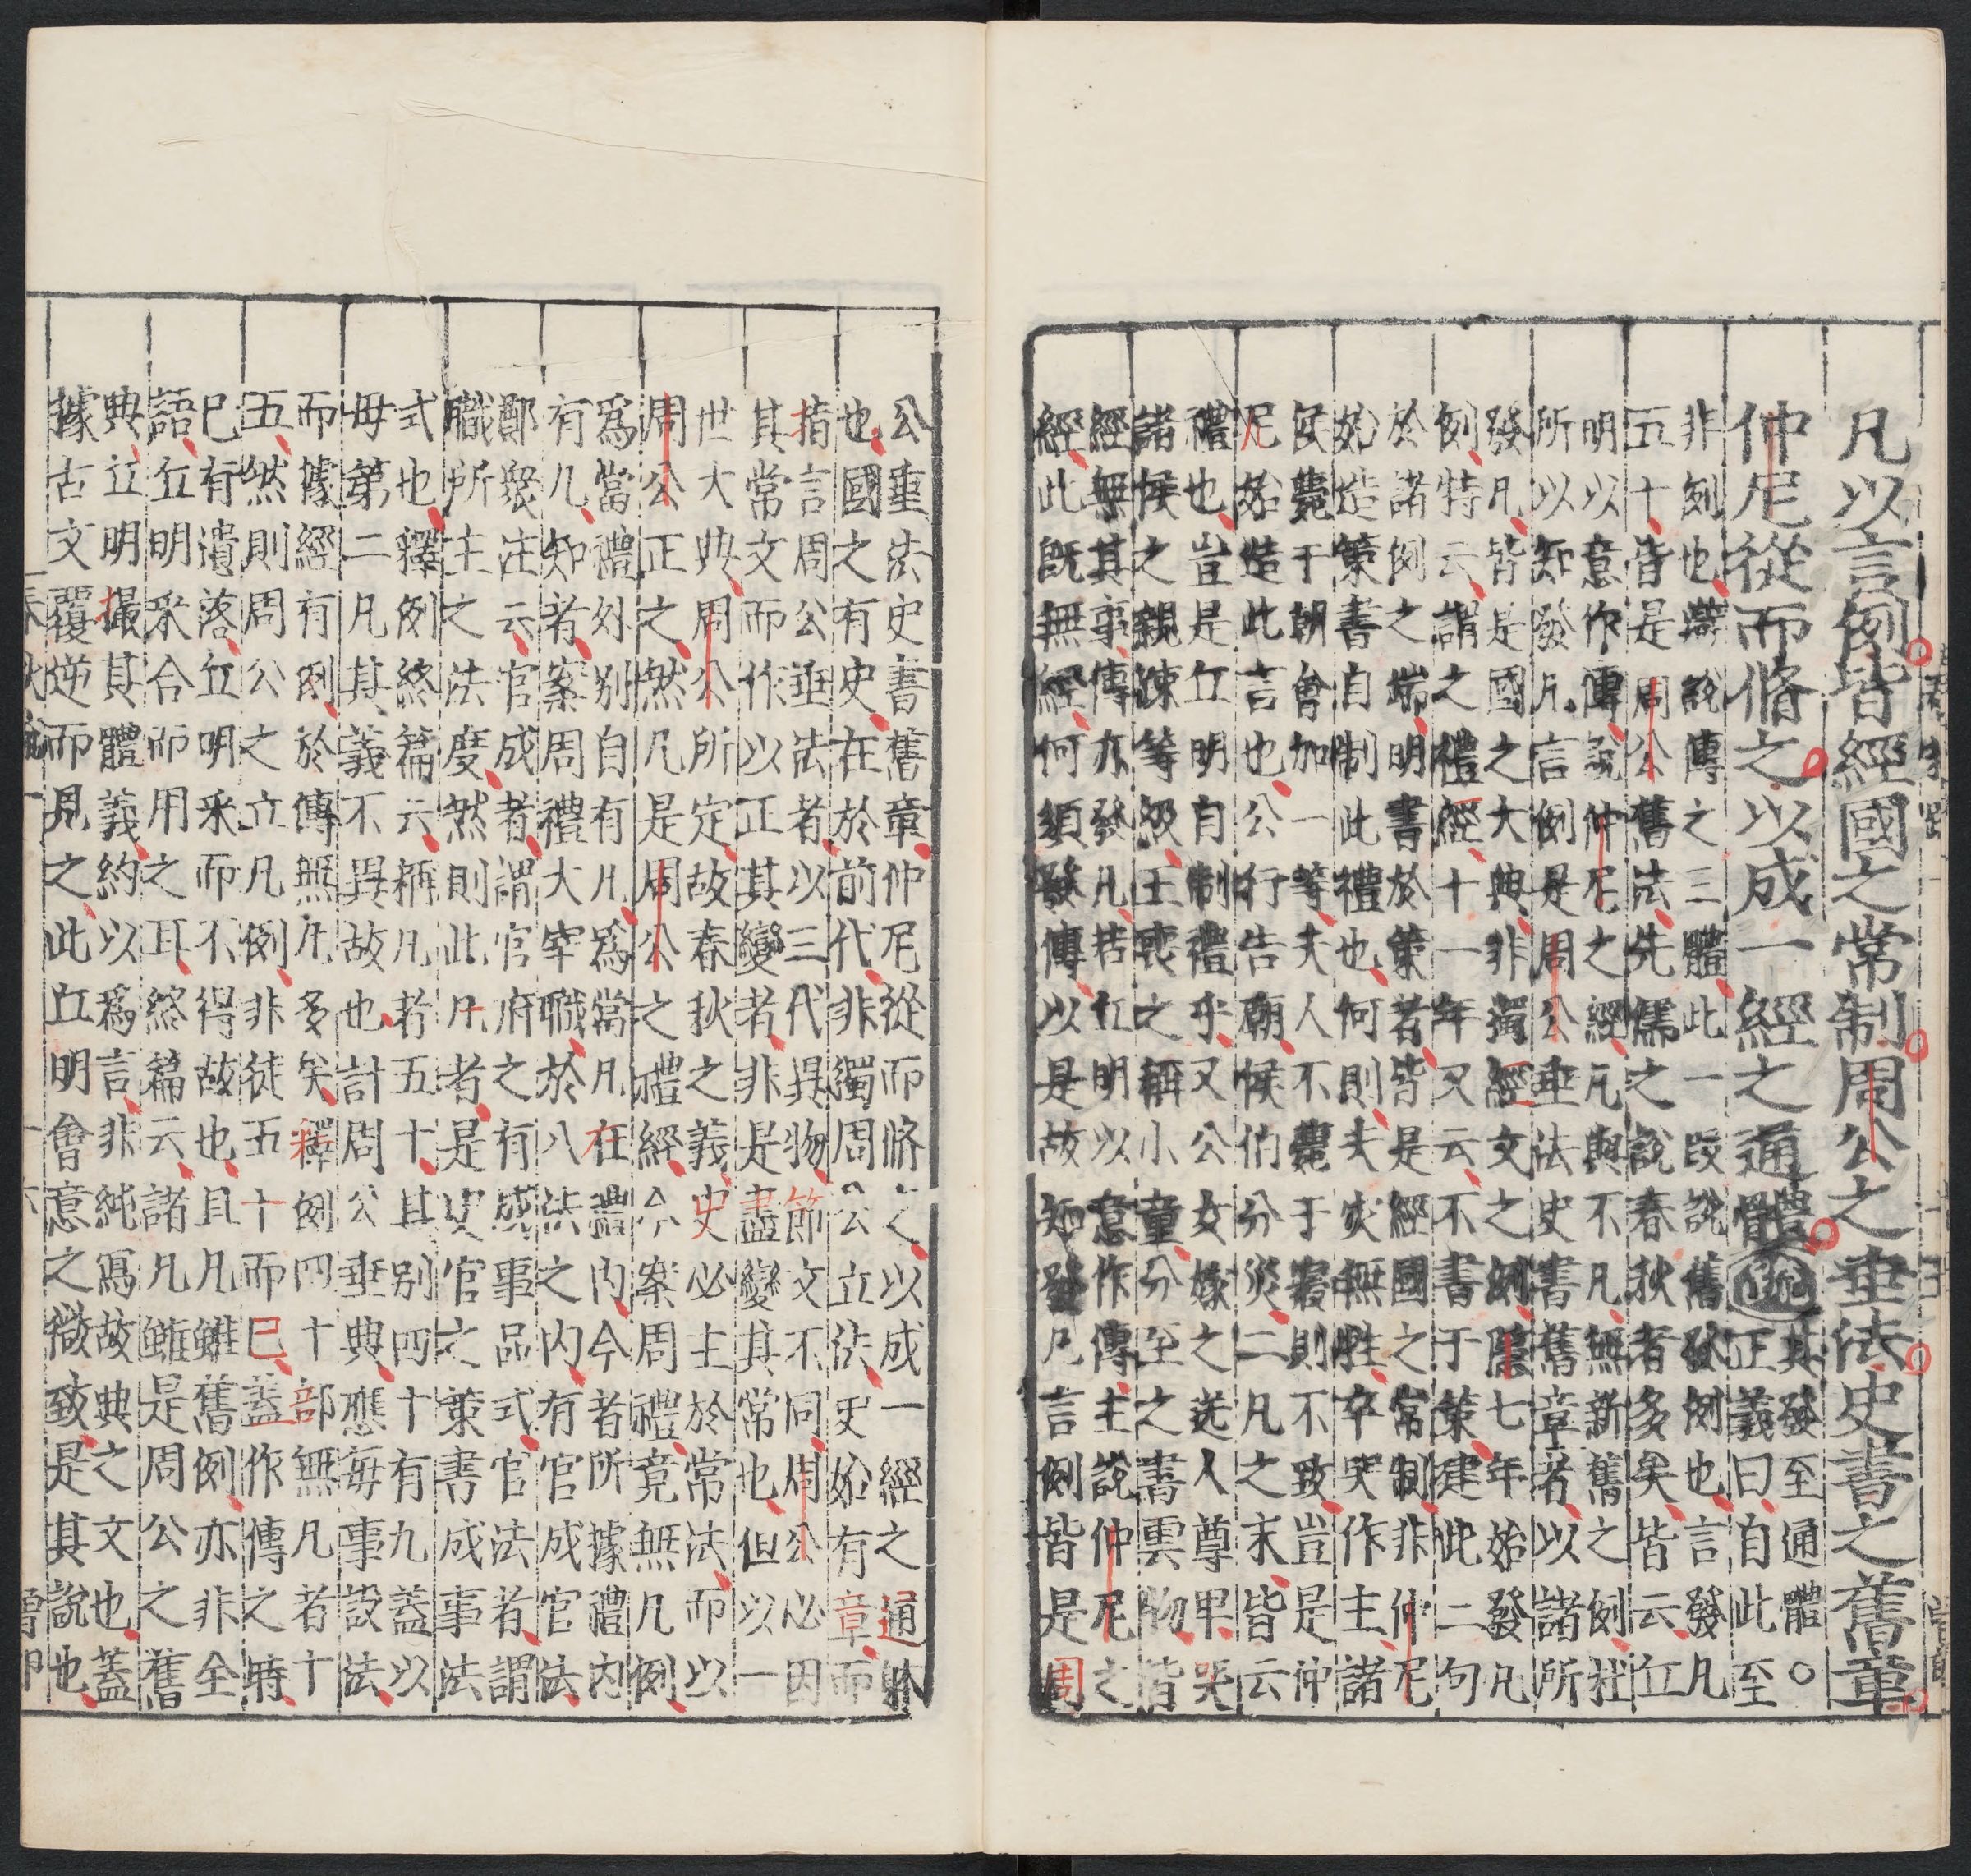 凡以言例皆經國之常制周公之垂法史書之舊章
仲尼從而脩之以成一經之通體疏
其發至通體○
正義曰自此至
非例也辯說傳之三體此一段說舊發例也言發凡
五十皆是周公舊法先儒之說春秋者多矣皆云丘
明以意作傳說仲尼之經凡與不凡無新舊之例杜
所以知發凡言例是周公垂法史書舊章者以諸所
發凡皆是國之大典非獨經文之例隱七年始發凡
例特云謂之禮經十一年又云不書于策建此二句
於諸例之端明書於策者皆是經國之常制非仲尼
始造策書自制此禮也何則夫災無牲卒哭作主諸
侯薨于朝會加一等夫人不薨于寢則不致豈是仲
尼始造此言也公行告廟侯伯分災二凡之末皆云
禮也豈是丘明自制禮乎又公女嫁之送人尊卑哭
諸侯之親疎等級王喪之稱小童分至之書雲物皆
經無其事傳亦發凡若丘明以意作傳主說仲尼之
經此既無經何須發傳以是故知發凡言例皆是周
公垂法史書舊章仲尼從而脩之以成一經之通體
也國之有史在於前代非獨周公立法史始有章而
指言周公垂法者以三代異物節文不同周公必因
其常文而作以正其變者非是盡變其常也但以一
世大典周公所定故春秋之義史必主於常法而以
周公正之然凡是周公之禮經今案周禮竟無凡例
為當禮外別自有凡為當凡在禮內今者所據禮內
有凡知者案周禮大宰職於八法之內有官成官法
鄭衆注云官成者謂官府之有成事品式官法者謂
職所主之法度然則此凡者是史官之策書成事法
式也釋例終篇云稱凡者五十其別四十有九蓋以
毋第二凡其義不異故也計周公垂典應每事設法
而據經有例於傳無凡多矣釋例四十部無凡者十
五然則周公之立凡例非徒五十而已蓋作傳之時
已有遺落丘明采而不得故也且凡雖舊例亦非全
語丘明采合而用之耳終篇云諸凡雖是周公之舊
典丘明撮其體義約以為言非純寫故典之文也蓋
據古文覆逆而見之此丘明會意之微致是其說也